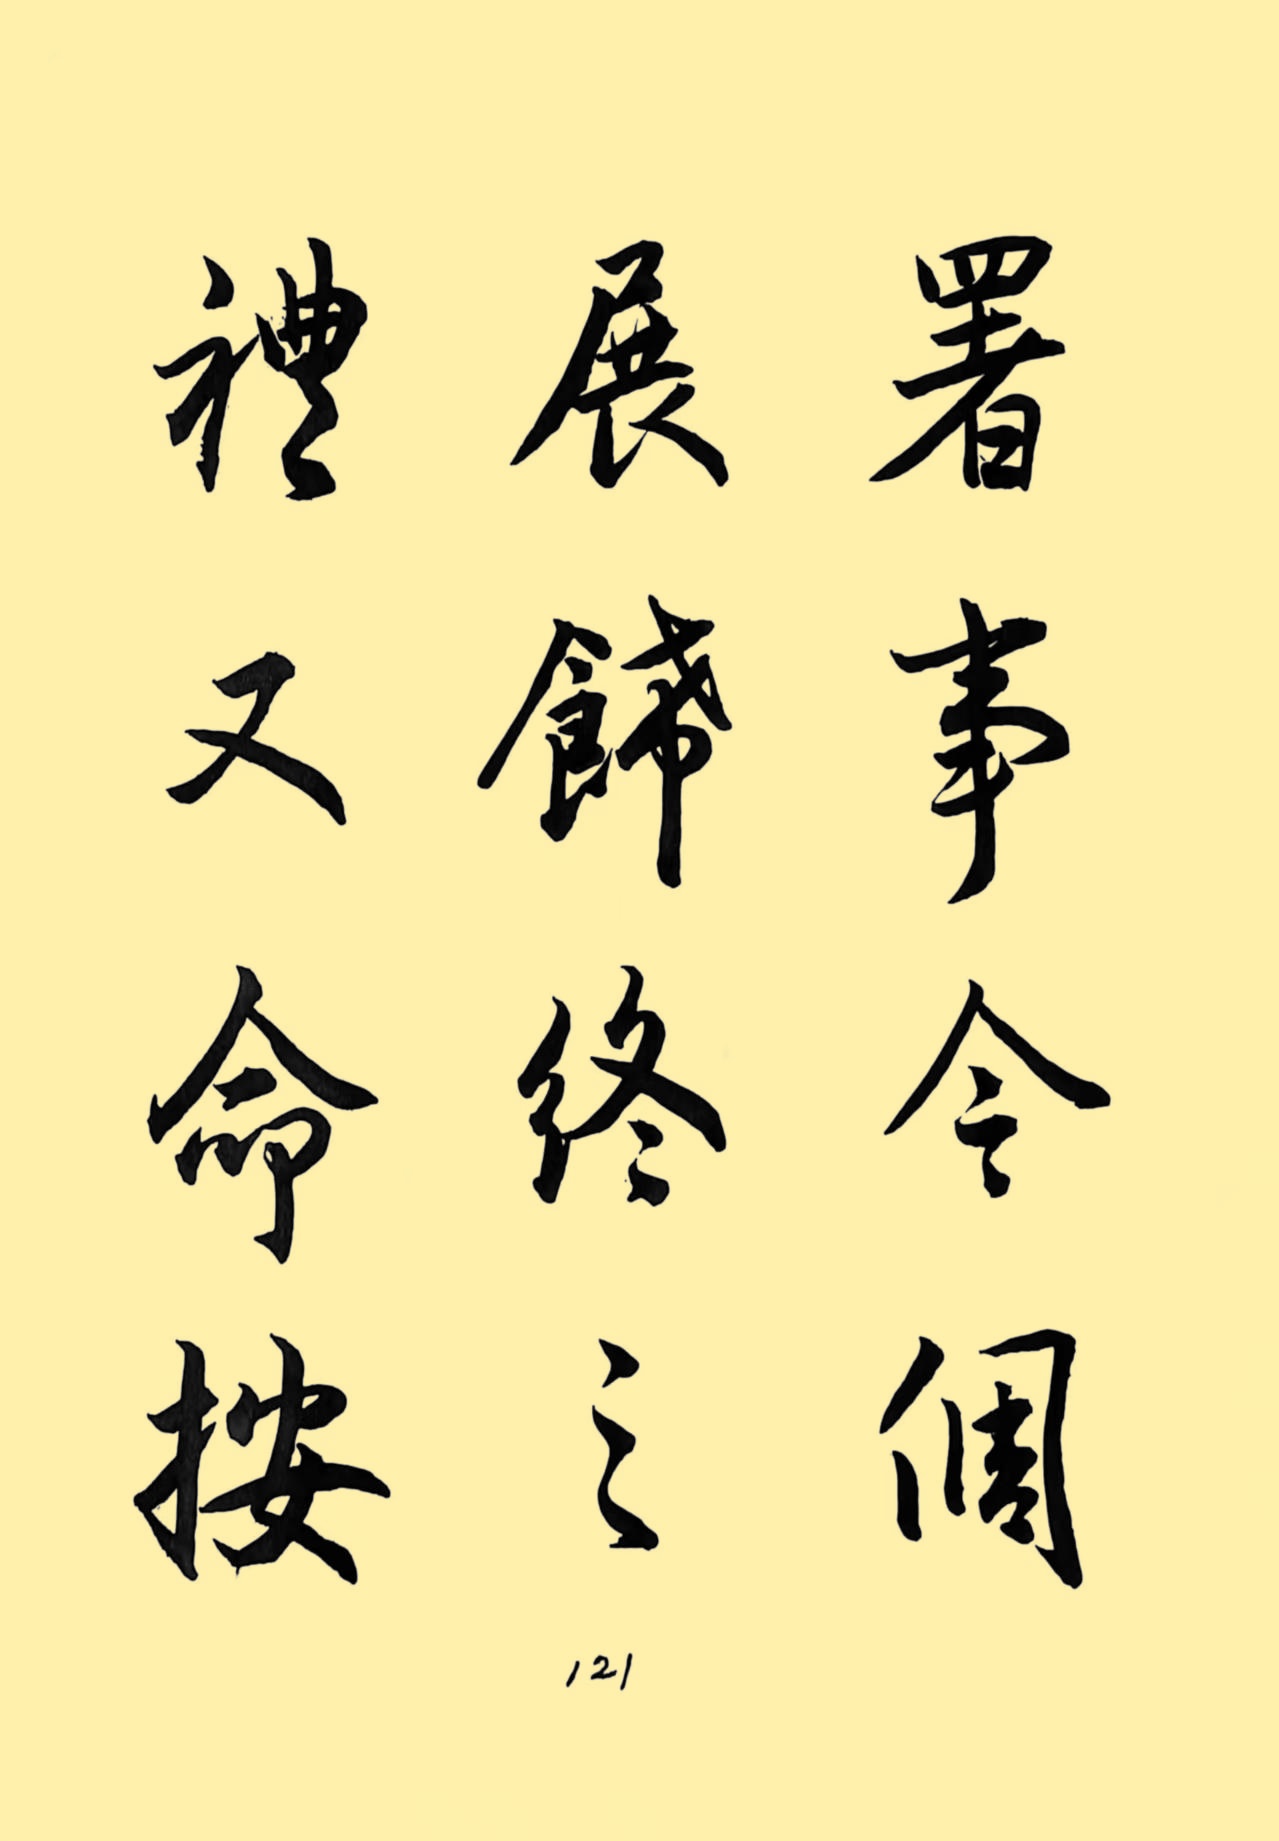 署事令倜
展飾終之
禮又命按
121